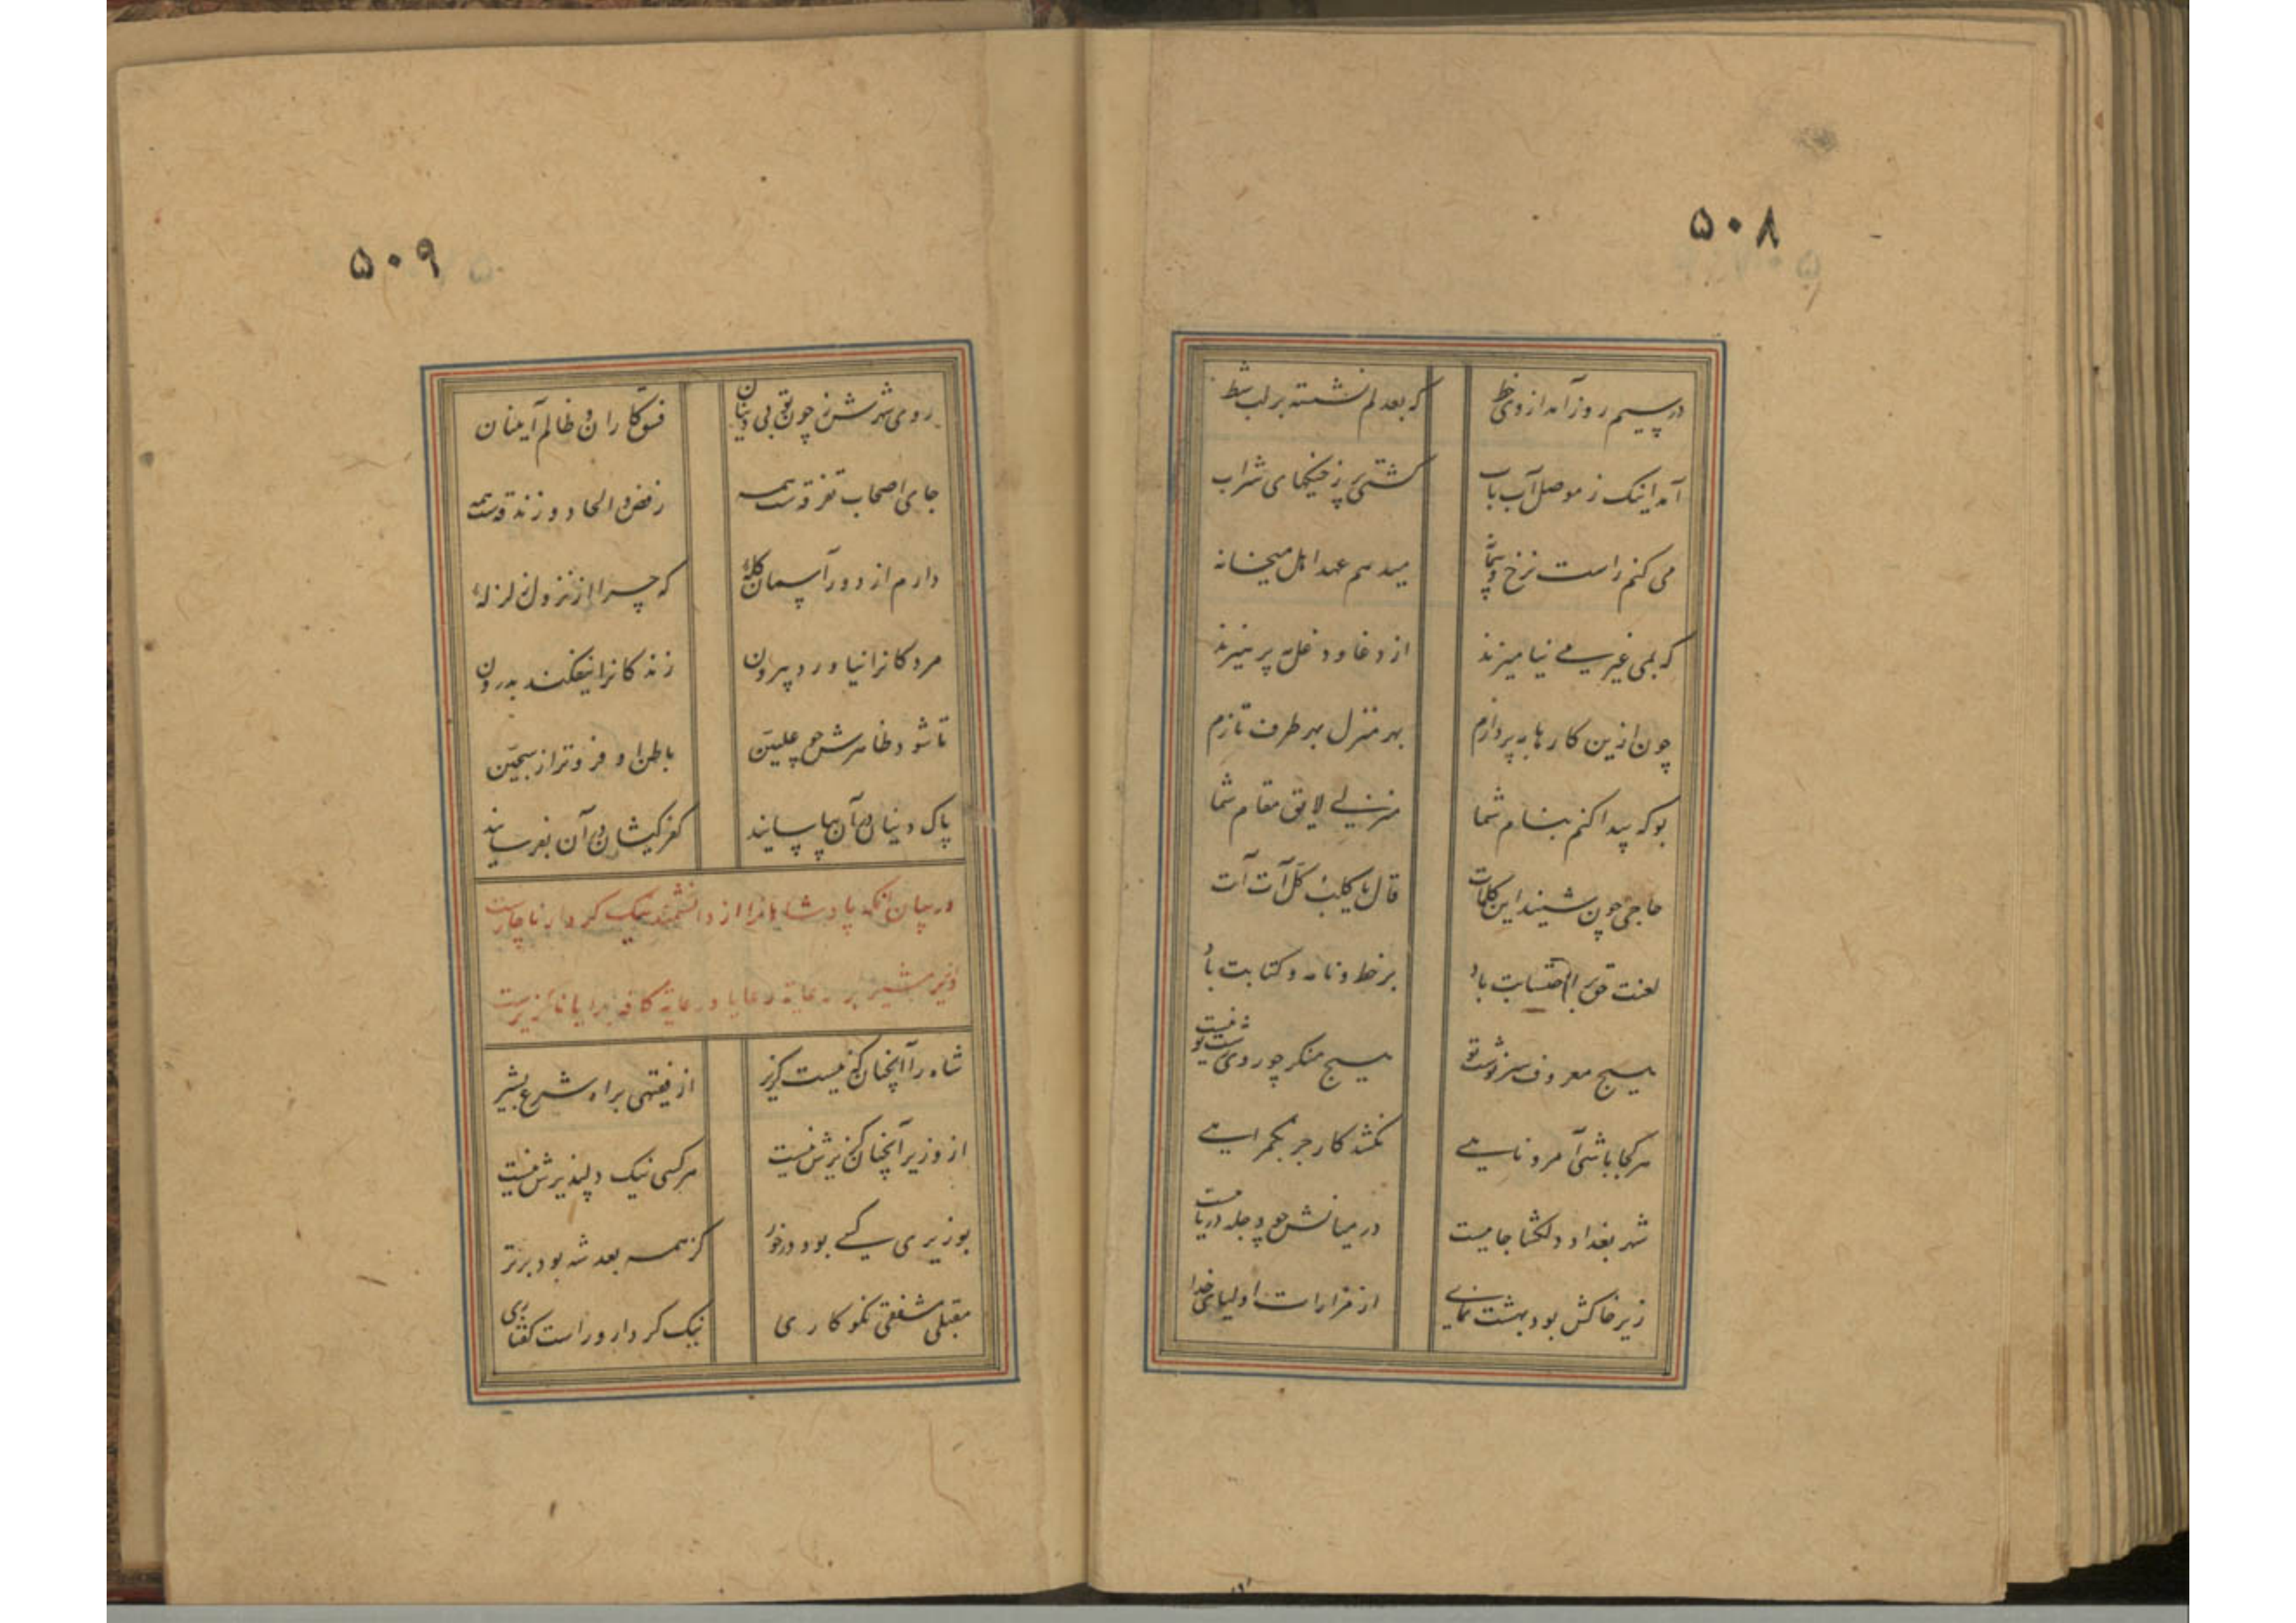 ۵۰۸
در سیم روز آمد از وی خط که بعد لم نشسته بر لب شط
آمد اینک ز موصل آب باب کشتی پر ز خیکهای شراب
می کنم راست نرخ و پیمانه میدهم عهد اهل میخانه
که بمی غیر می نیامیزند از دغا و دغل بپرهیزند
چون ازین کارها بپردازم بهر منزل بهر طرف تازم
بو که پیدا کنم بنام شما منزلی لایق مقام شما
حاجی چون شنید این کلمات قال یا کلب کل آت آت
لعنت حق بر احتسابت باد بر خط و نامه و کتابت باد
هیچ معروف سر نوشت تو نیست هیچ منکر چو روی زشت تو نیست
هر کجا باشی آمر و ناهی نکشد کار جز بگمراهی
شهر بغداد دلکشا جاییست در میانش چو دجله دریاییست
زیر خاکش بود بهشت نمای از مزارات اولیای خدا
۵۰۹
روی شهرش ز چون تو بی دینان فسق کاران و ظالم آیینان
جای اصحاب تفرقه ست همه رفض و الحاد و زندقه ست همه
دارم از دور آسمان گله که چرا از نزول زلزله
مردگانرا نیاورد بیرون زندگانرا نیفکند بدرون
تا شود ظاهرش چو علیین باطن او فروتر از سجین
پاک دینان در آن بیاسایند کفر کیشان در آن بفرسایند
در بیان آنکه پادشاهانرا از دانشمند نیک کردار ناچارست
وزیر مشیر بر رعایة رعایا و رعایة کافه برایا ناگزیرست
شاه را آنچنان که نیست گزیر از فقیهی براه شرع بشیر
از وزیر آنچنان گزیرش نیست هر کسی نیک و دلپذیرش نیست
بوزیری کسی بود درخور کز همه بعد شه بود برتر
مقبلی مشفقی نکوکاری نیک کردار و راست گفتاری